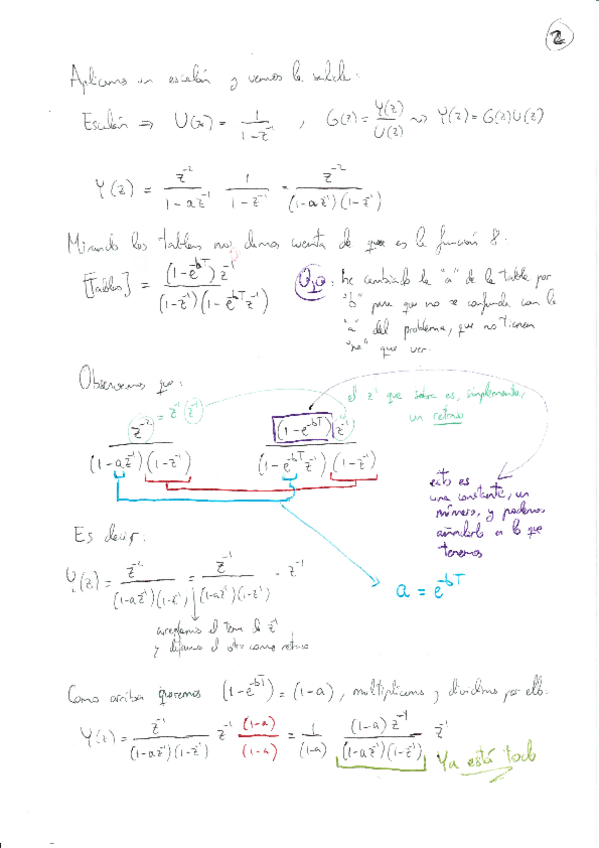 2
Aplicamos un escalón y vemos la salida:
Escalón ⇒ U(z) = 1/(1-z⁻¹) , G(z) = Y(z)/U(z) ⇝ Y(z) = G(z)U(z)
Y(z) = z⁻²/(1-az⁻¹) 1/(1-z⁻¹) = z⁻²/((1-az⁻¹)(1-z⁻¹))
Mirando las tablas nos damos cuenta de que es la función 8.
[Tablas] = (1-e^-bT)z⁻¹/((1-z⁻¹)(1-e^-bT z⁻¹))
Ojo: he cambiado la "a" de la tabla por
"b" para que no se confunda con la
"a" del problema, que no tienen
"na" que ver.
Observamos que:
el z⁻¹ que sobra es, simplemente,
un retraso
z⁻² = z⁻¹ z⁻¹
z⁻²/((1-az⁻¹)(1-z⁻¹)) (1-e^-bT)z⁻¹/((1-e^-bT z⁻¹)(1-z⁻¹))
esto es
una constante, un
número, y podemos
añadirlo a lo que
tenemos
a = e^-bT
Es decir:
Y(z) = z⁻²/((1-az⁻¹)(1-z⁻¹)) = z⁻¹/((1-az⁻¹)(1-z⁻¹)) · z⁻¹
arreglamos el tema de z⁻¹
y dejamos el otro como retraso
Como arriba queremos (1-e^-bT) = (1-a), multiplicamos y dividimos por ello:
Y(z) = z⁻¹/((1-az⁻¹)(1-z⁻¹)) z⁻¹ (1-a)/(1-a) = 1/(1-a) (1-a)z⁻¹/((1-az⁻¹)(1-z⁻¹)) z⁻¹
Ya está todo